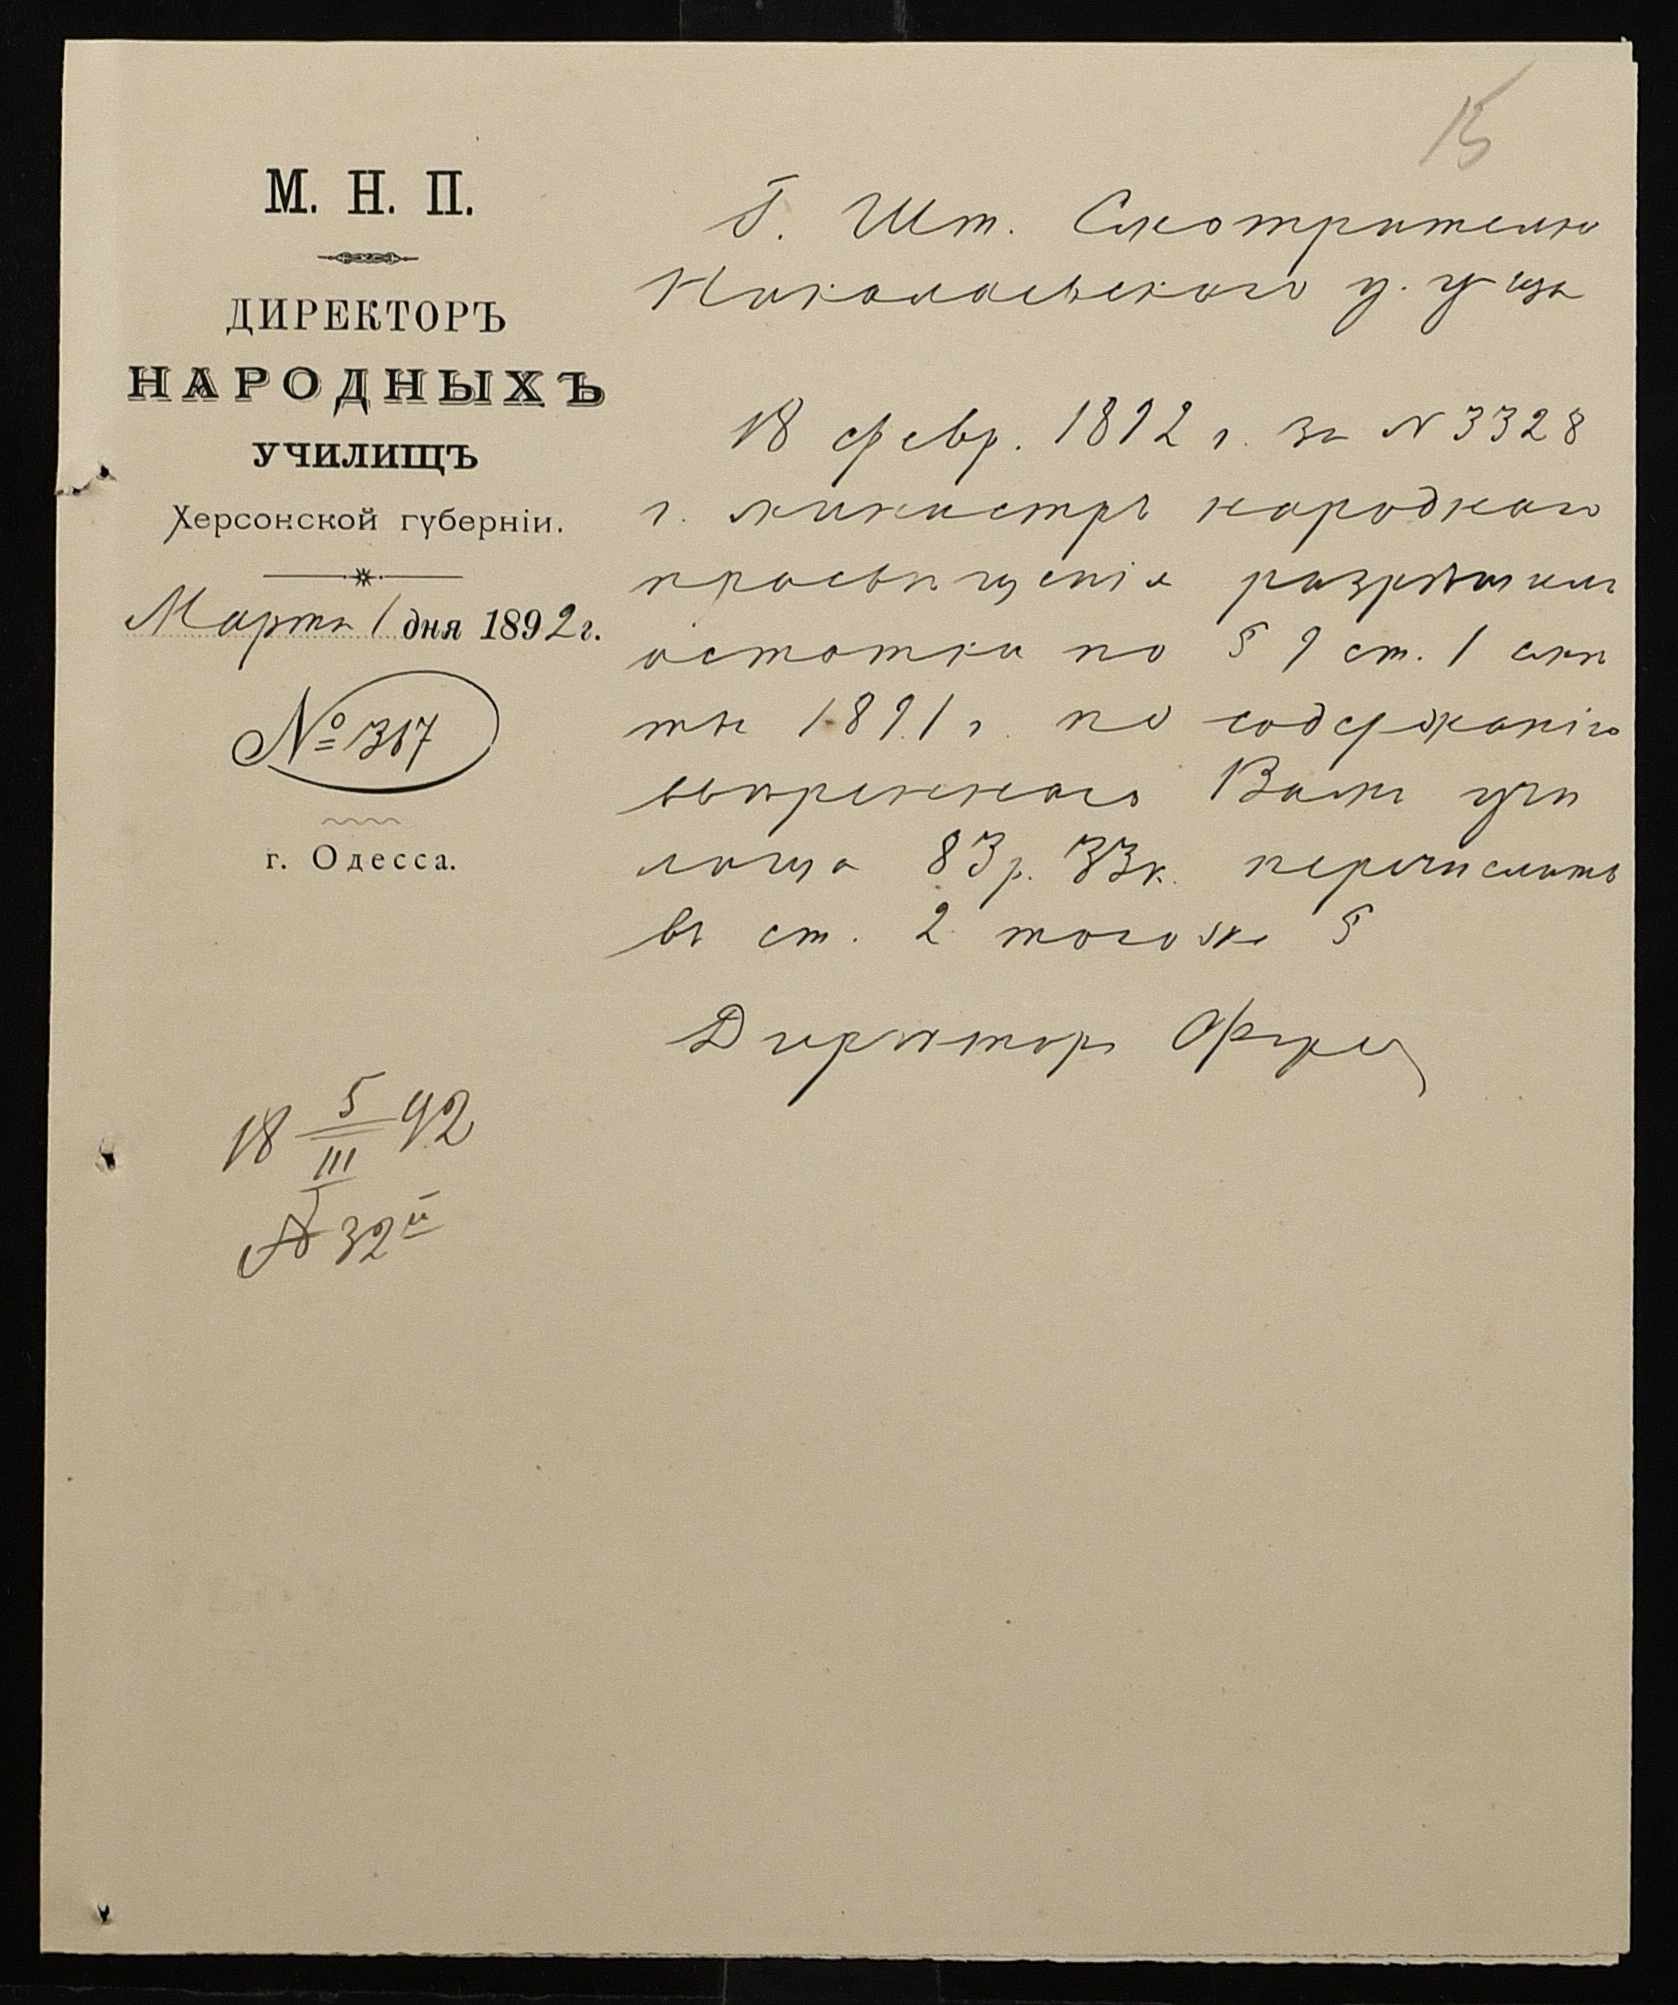 15
М. Н. П.
ДИРЕКТОРЪ
НАРОДНЫХЪ
УЧИЛИЩЪ
Херсонской губерніи.
Марта 1 дня 1892 г.
№ 317
г. Одесса.
Г. Шт. Смотрителю
Николаевскаго у. у-ща
18 февр. 1892 г. за N 3328
г. министръ народнаго
просвѣщенія разрѣшилъ
остатки по § 9 ст. 1 смѣ
ты 1891 г. по содержанію
ввѣреннаго Вамъ учи
лища 83 р. 33 к. перечислить
въ ст. 2 того же §
Директоръ
18 5/III 92
№ 32й